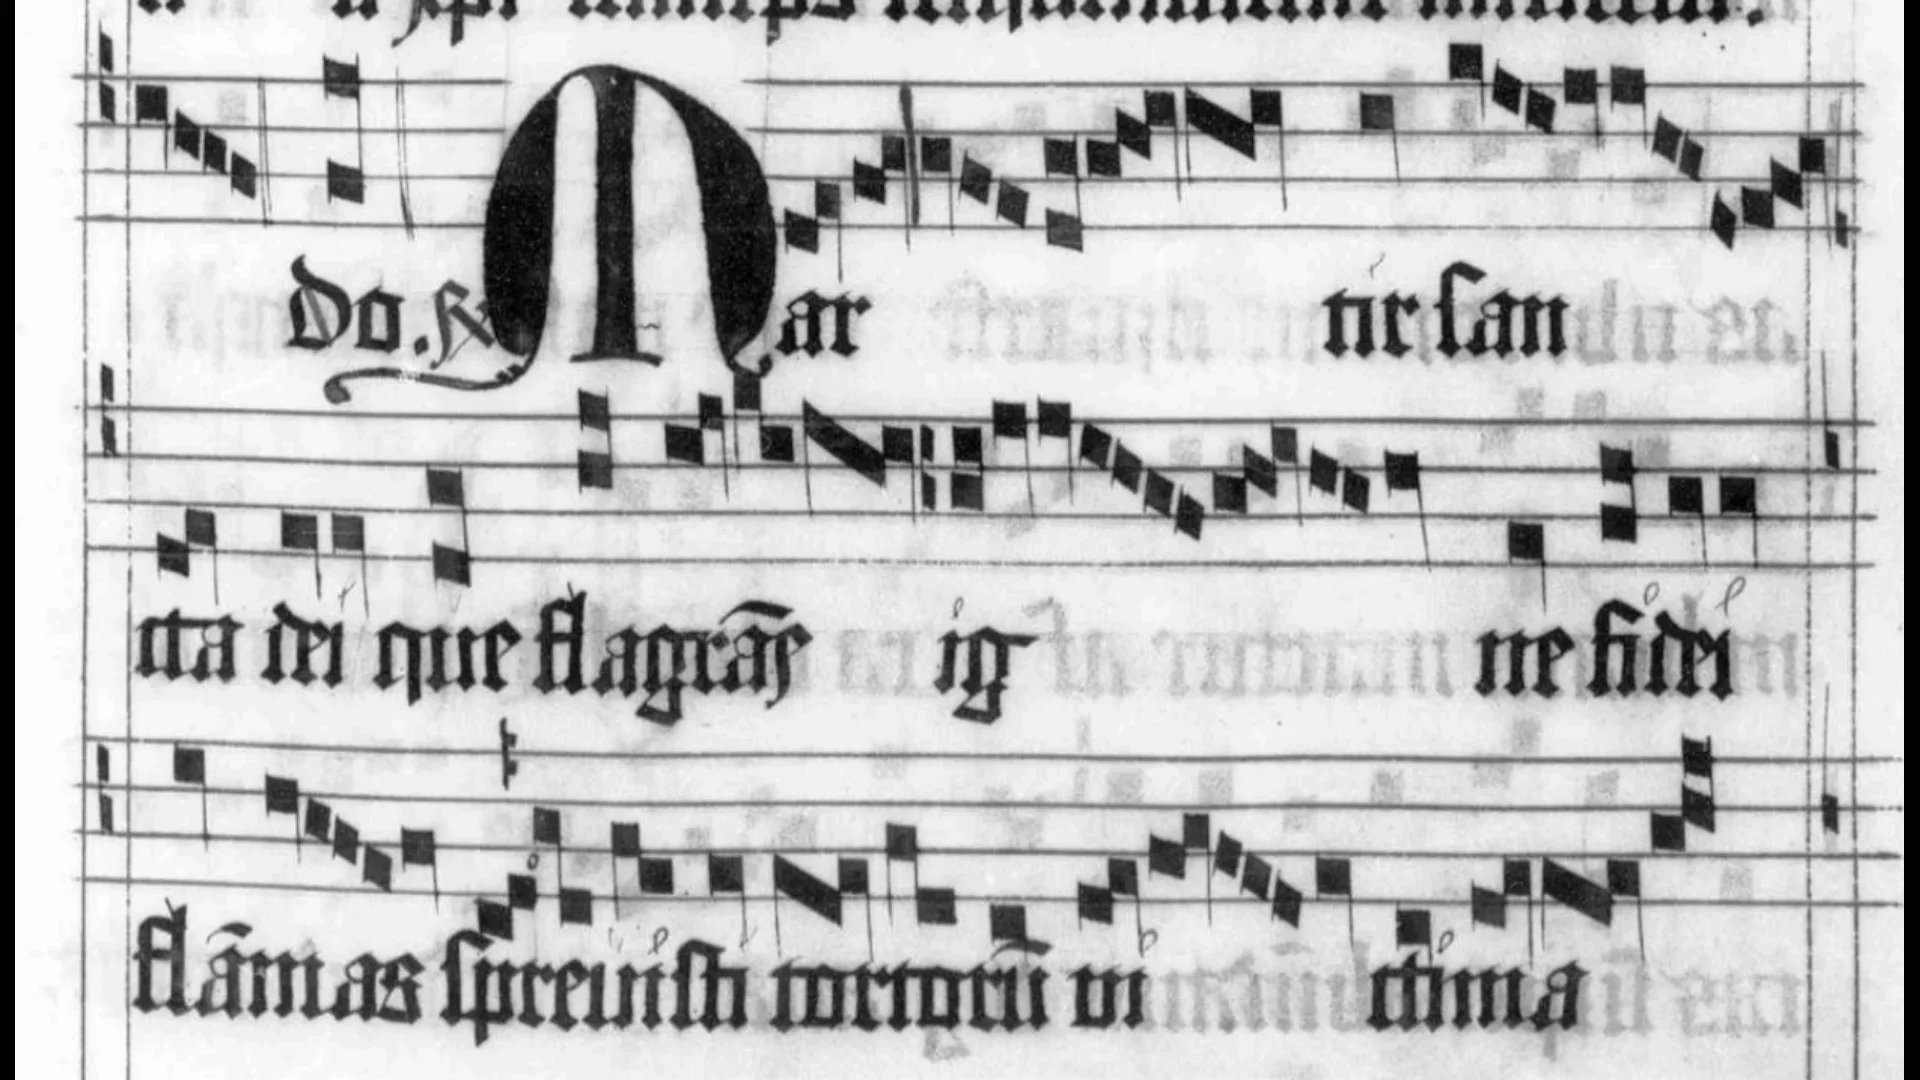 do. ℟ Mar tir san
cta dei que flagrãs ig ne fidei
flãmas spreuisti tortorũ ui ctima